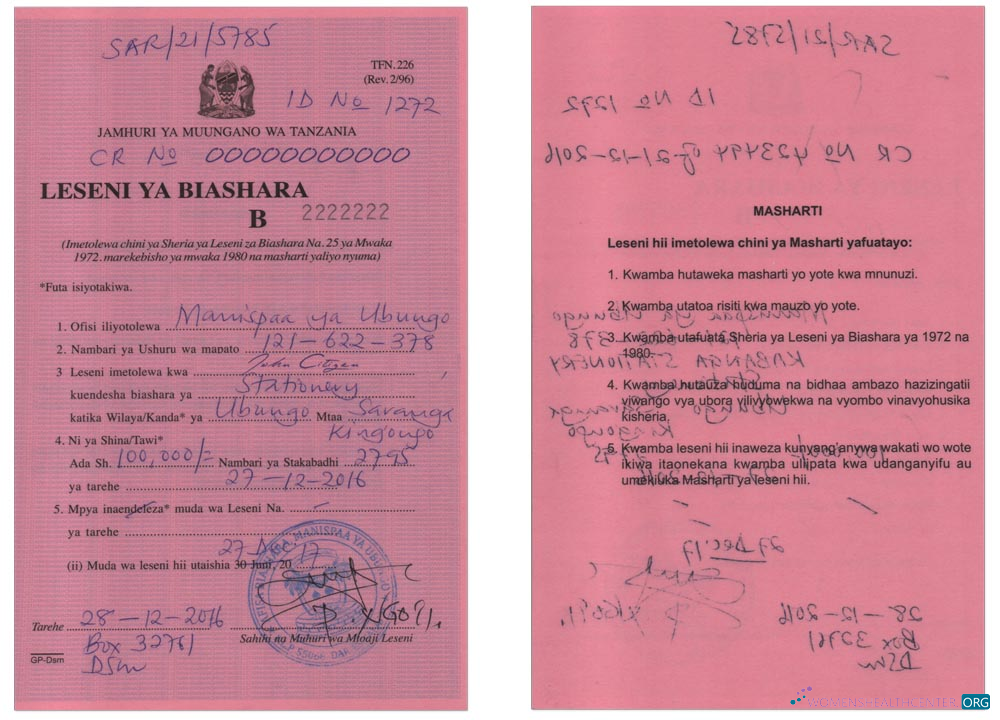 SAR/21/5785
TFN. 226
(Rev. 2/96)
ID No 1272
JAMHURI YA MUUNGANO WA TANZANIA
CR No 00000000000
LESENI YA BIASHARA
B 2222222
(Imetolewa chini ya Sheria ya Leseni za Biashara Na. 25 ya Mwaka
1972. marekebisho ya mwaka 1980 na masharti yaliyo nyuma)
*Futa isiyotakiwa.
1. Ofisi iliyotolewa Manispaa ya Ubungo
2. Nambari ya Ushuru wa mapato 121-622-378
3 Leseni imetolewa kwa John Citizen
kuendesha biashara ya Stationery
katika Wilaya/Kanda* ya Ubungo Mtaa Saranga
Kingongo
4. Ni ya Shina/Tawi*
Ada Sh. 100,000/= Nambari ya Stakabadhi 2795
ya tarehe 27-12-2016
5. Mpya inaendeleza* muda wa Leseni Na. -
ya tarehe -
27 Dec 17
(ii) Muda wa leseni hii utaishia 30 Juni, 20
Tarehe 28-12-2016
Sahihi na Muhuri wa Mtoaji Leseni
Box 32761
DSm
GP-Dsm
MANISPAA YA UBUNGO
SAR/21/5785
ID No 1272
CR No 423494 of 21-12-2016
MASHARTI
Leseni hii imetolewa chini ya Masharti yafuatayo:
1. Kwamba hutaweka masharti yo yote kwa mnunuzi.
2. Kwamba utatoa risiti kwa mauzo yo yote.
Manispaa ya Ubungo
3. Kwamba utafuata Sheria ya Leseni ya Biashara ya 1972 na
378
1980.
KABANGA STATIONERY
4. Kwamba hutauza huduma na bidhaa ambazo hazizingatii
viwango vya ubora vilivyowekwa na vyombo vinavyohusika
Ubungo Saranga
kisheria.
Kingongo
5. Kwamba leseni hii inaweza kunyang'anywa wakati wo wote
ikiwa itaonekana kwamba uliipata kwa udanganyifu au
umekiuka Masharti ya leseni hii.
27 Dec 17
28-12-2016
Box 32761
DSm
WOMENSHEALTHCENTER.ORG